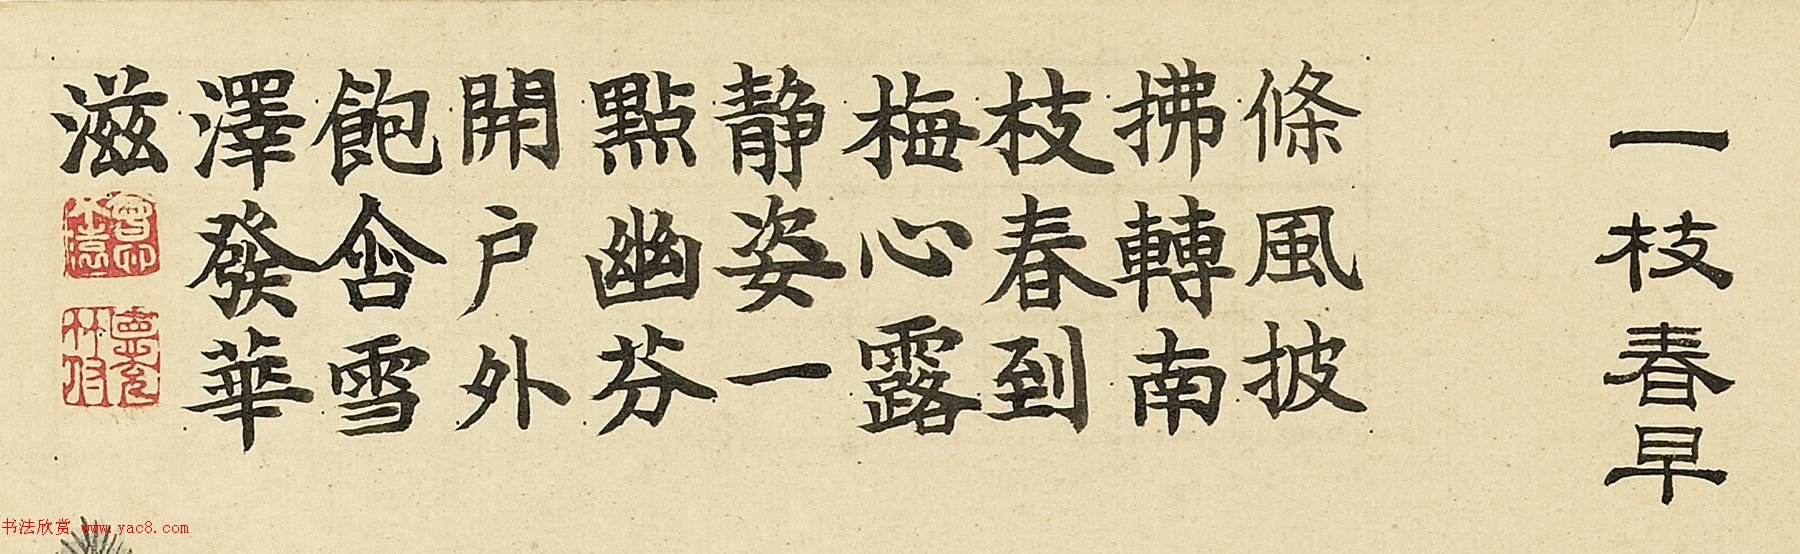 一枝春早
條風披
拂轉南
枝春到
梅心露
静姿一
點幽芬
開户外
飽含雪
澤發華
滋
书法欣赏 www.yac8.com